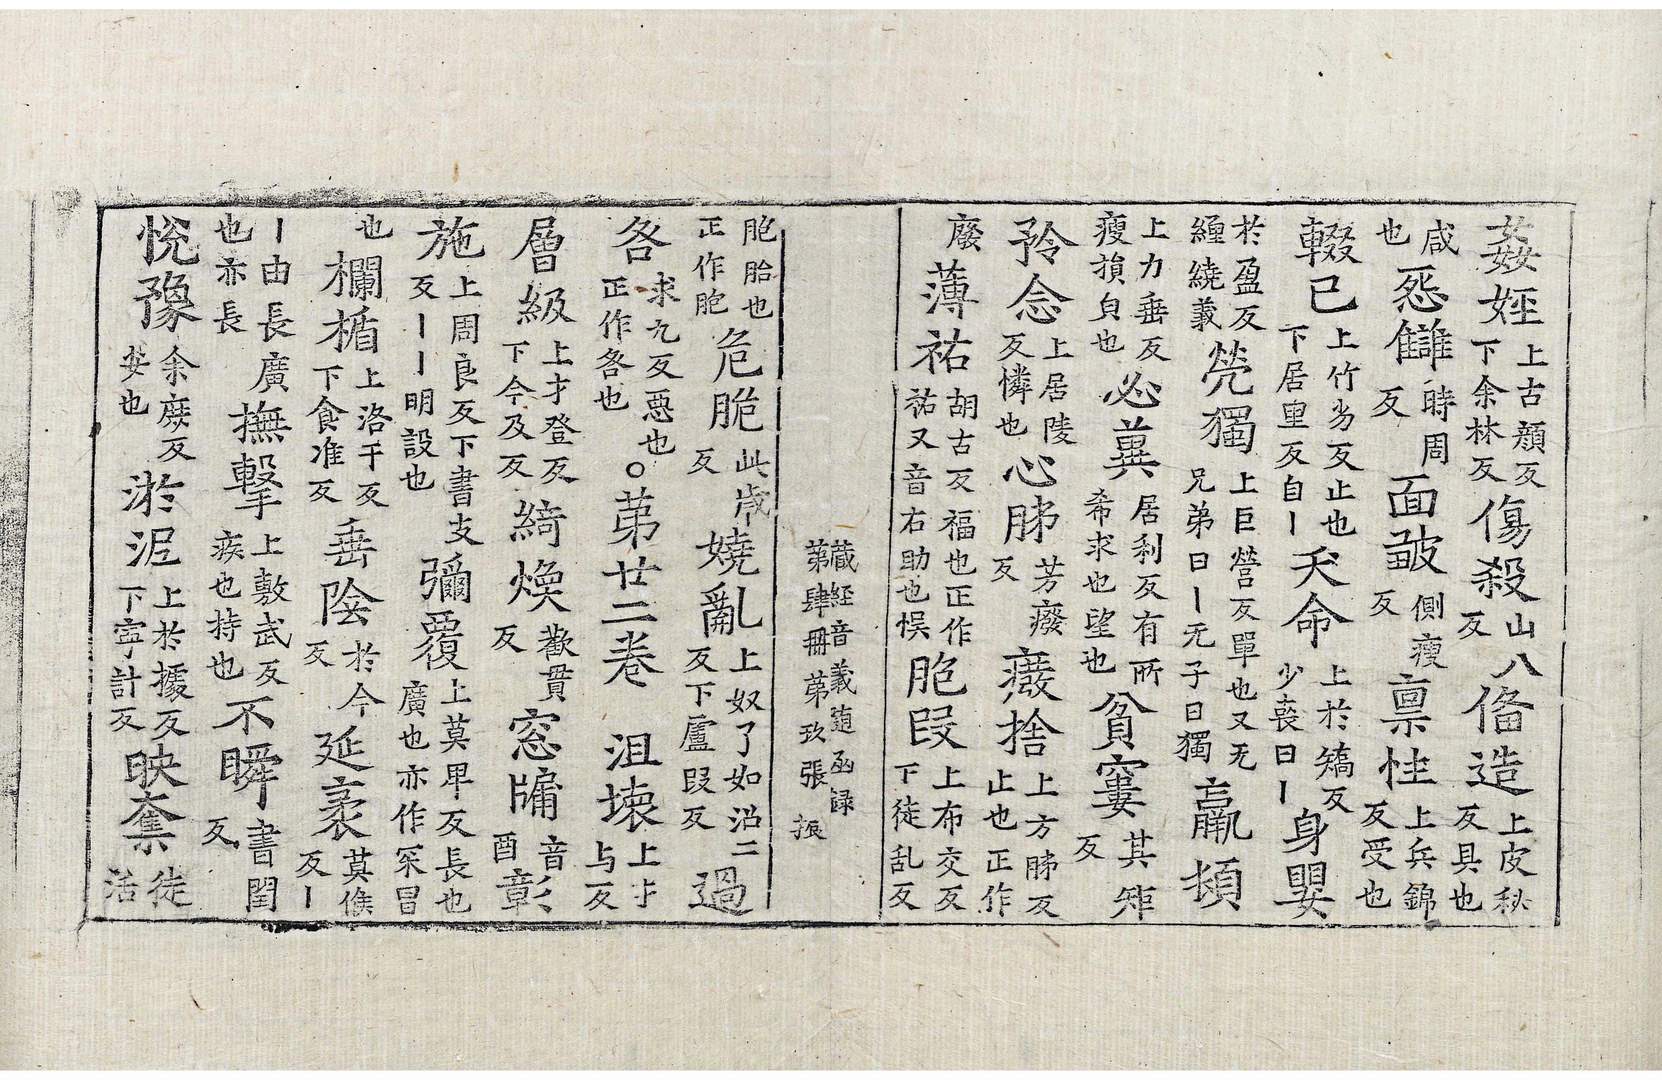 姦婬上古顏反下余林反傷殺山八反俻造上皮秘反具也
咸也惌讎時周反面皺側瘦反禀性上兵錦反受也
輟已上竹劣反止也下居里反自丨夭命上於矯反少喪曰丨身嬰
於盈反纏繞義煢獨上巨營反單也又无兄弟曰丨无子曰獨羸損
上力垂反瘦損皃也必兾居利反有所希求也望也貧窶其矩反
矜念上居陵反憐也心肺芳癈反癈捨上方肺反止也正作
廢薄祐胡古反福也正作祜又音右助也悮胞段上布交反下徒乱反
藏経音義随函録第肆冊第玖張 振
胞胎也正作胞危脆此歳反嬈亂上奴了如沼二反下盧叚反過
各求九反惡也正作咎也○苐廿二卷 沮壊上才与反
層級上才登反下今及反綺煥歡貫反窓牖音酉彰
施上周良反下書支反丨丨明設也彌覆上莫卑反長也廣也亦作冞冒
也欄楯上洛干反下食准反垂陰於今反延袤莫候反丨
丨由長也亦長廣撫擊上敷武反疾也持也不瞬書閏反
悅豫余庶反安也淤泥上於據反下寧計反映奪徒活